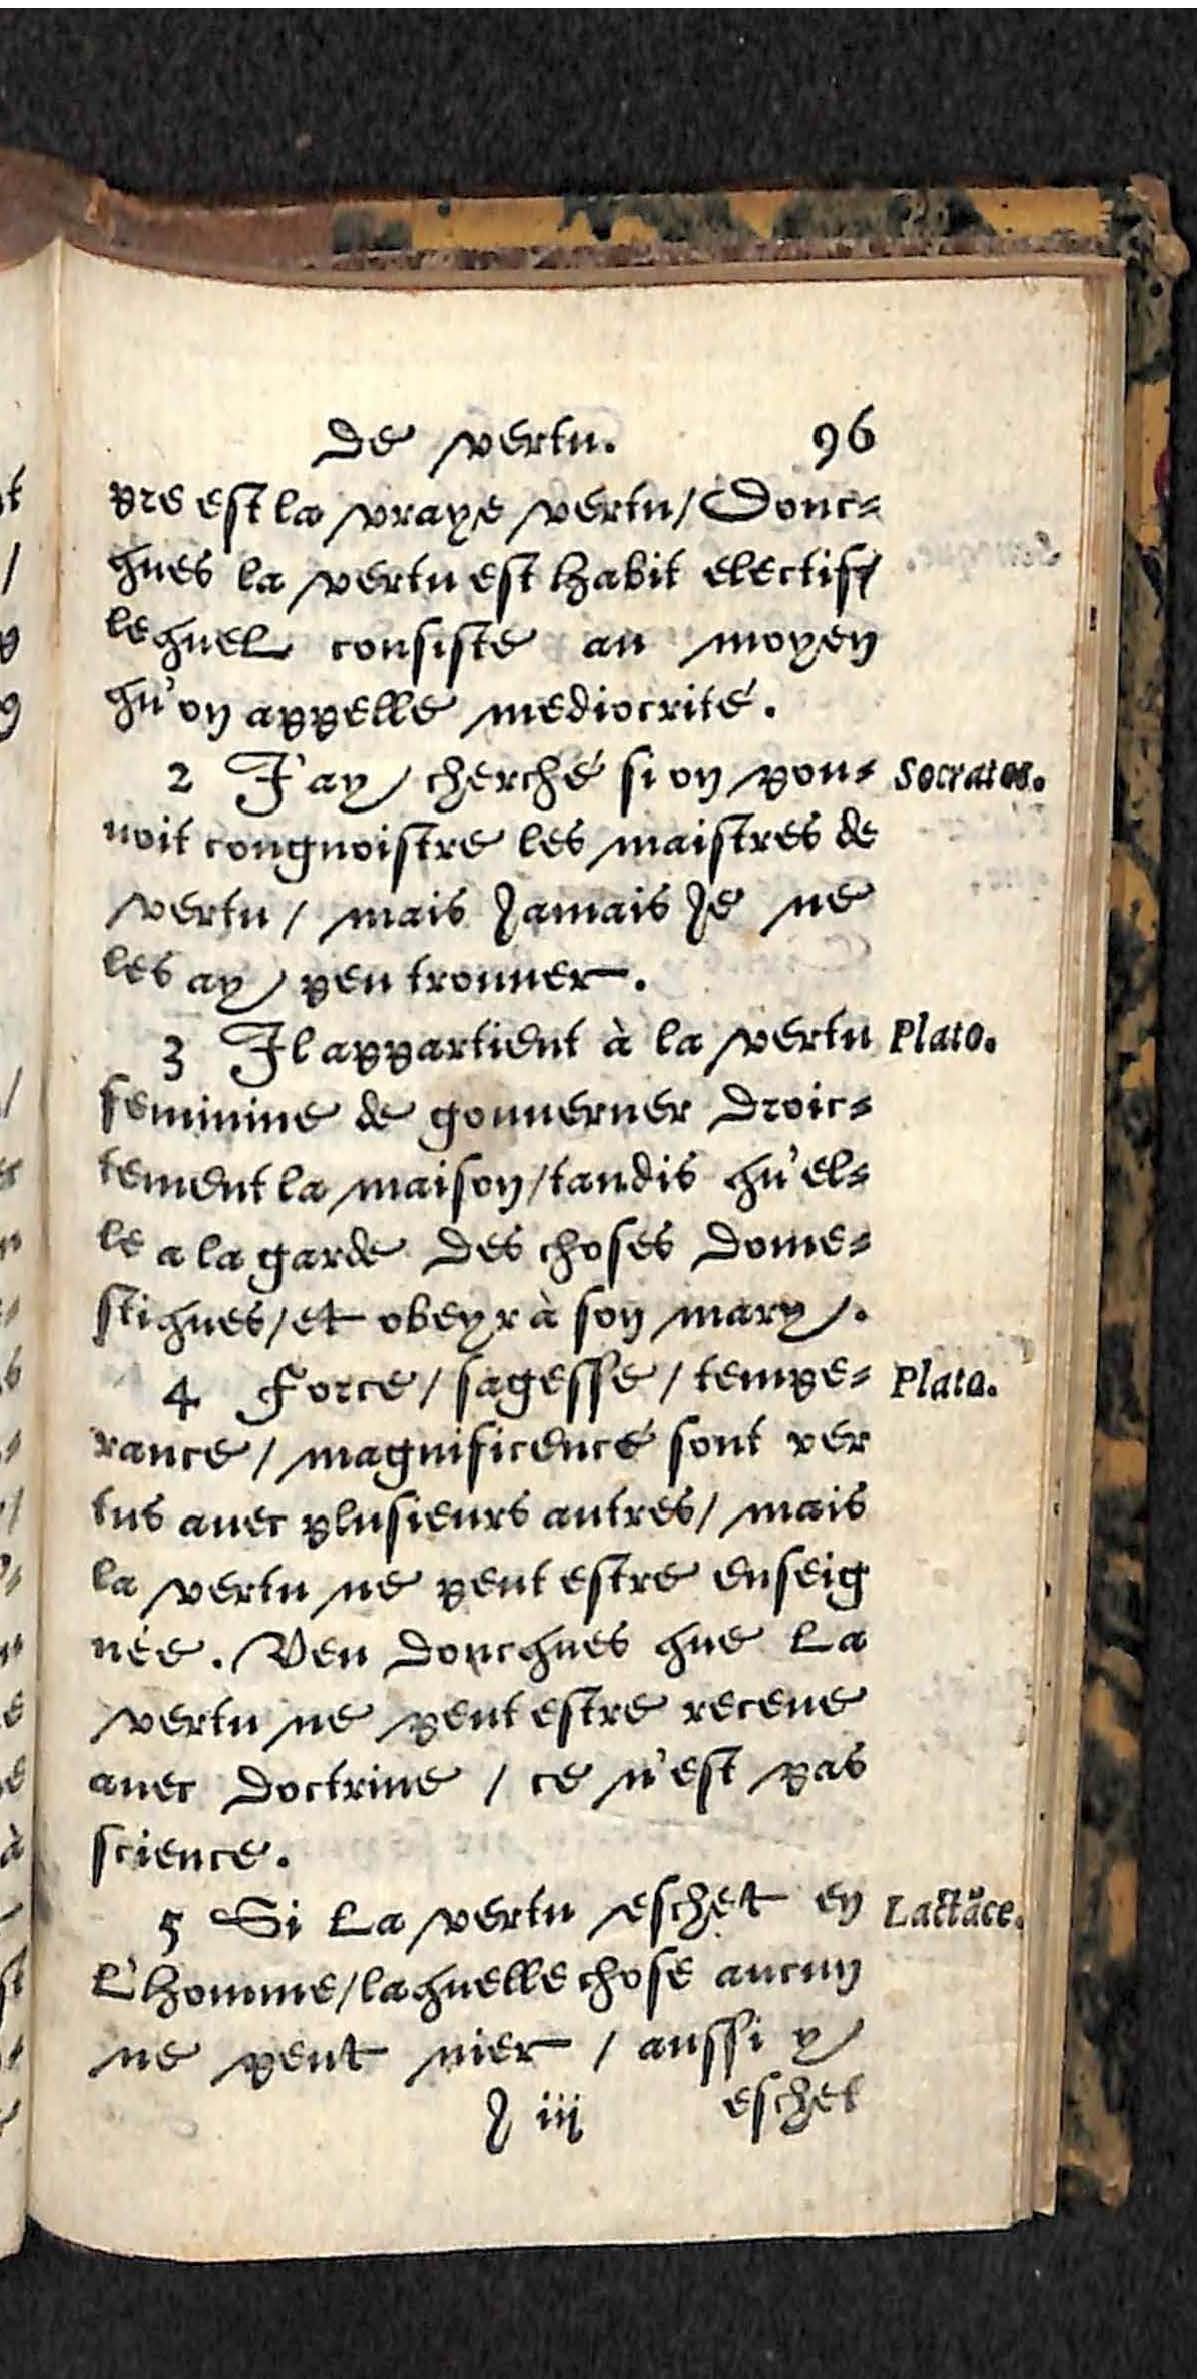 De vertu. 96
pre est la vraye vertu/ Donc=
ques la vertu est habit electif/
lequel consiste au moyen
qu'on appelle mediocrité.
2 J'ay cherché si on pou= Socrates.
uoit congnoistre les maistres de
vertu / mais Jamais Je ne
les ay peu trouuer.
3 Il appartient à la vertu Plato.
feminine de gouuerner droic=
tement la maison/tandis qu'el=
le a la garde des choses dome=
stiques/et obeyr à son mary.
4 Force/ sagesse / tempe= Plato.
rance / magnificence sont ver
tus auec plusieurs autres/ mais
la vertu ne peut estre enseig
née. Veu doncques que la
vertu ne peut estre receue
auec doctrine / ce n'est pas
science.
5 Si la vertu eschet en Lactāce.
l'homme/laquelle chose aucun
ne peut nier / aussi y
J iij eschet